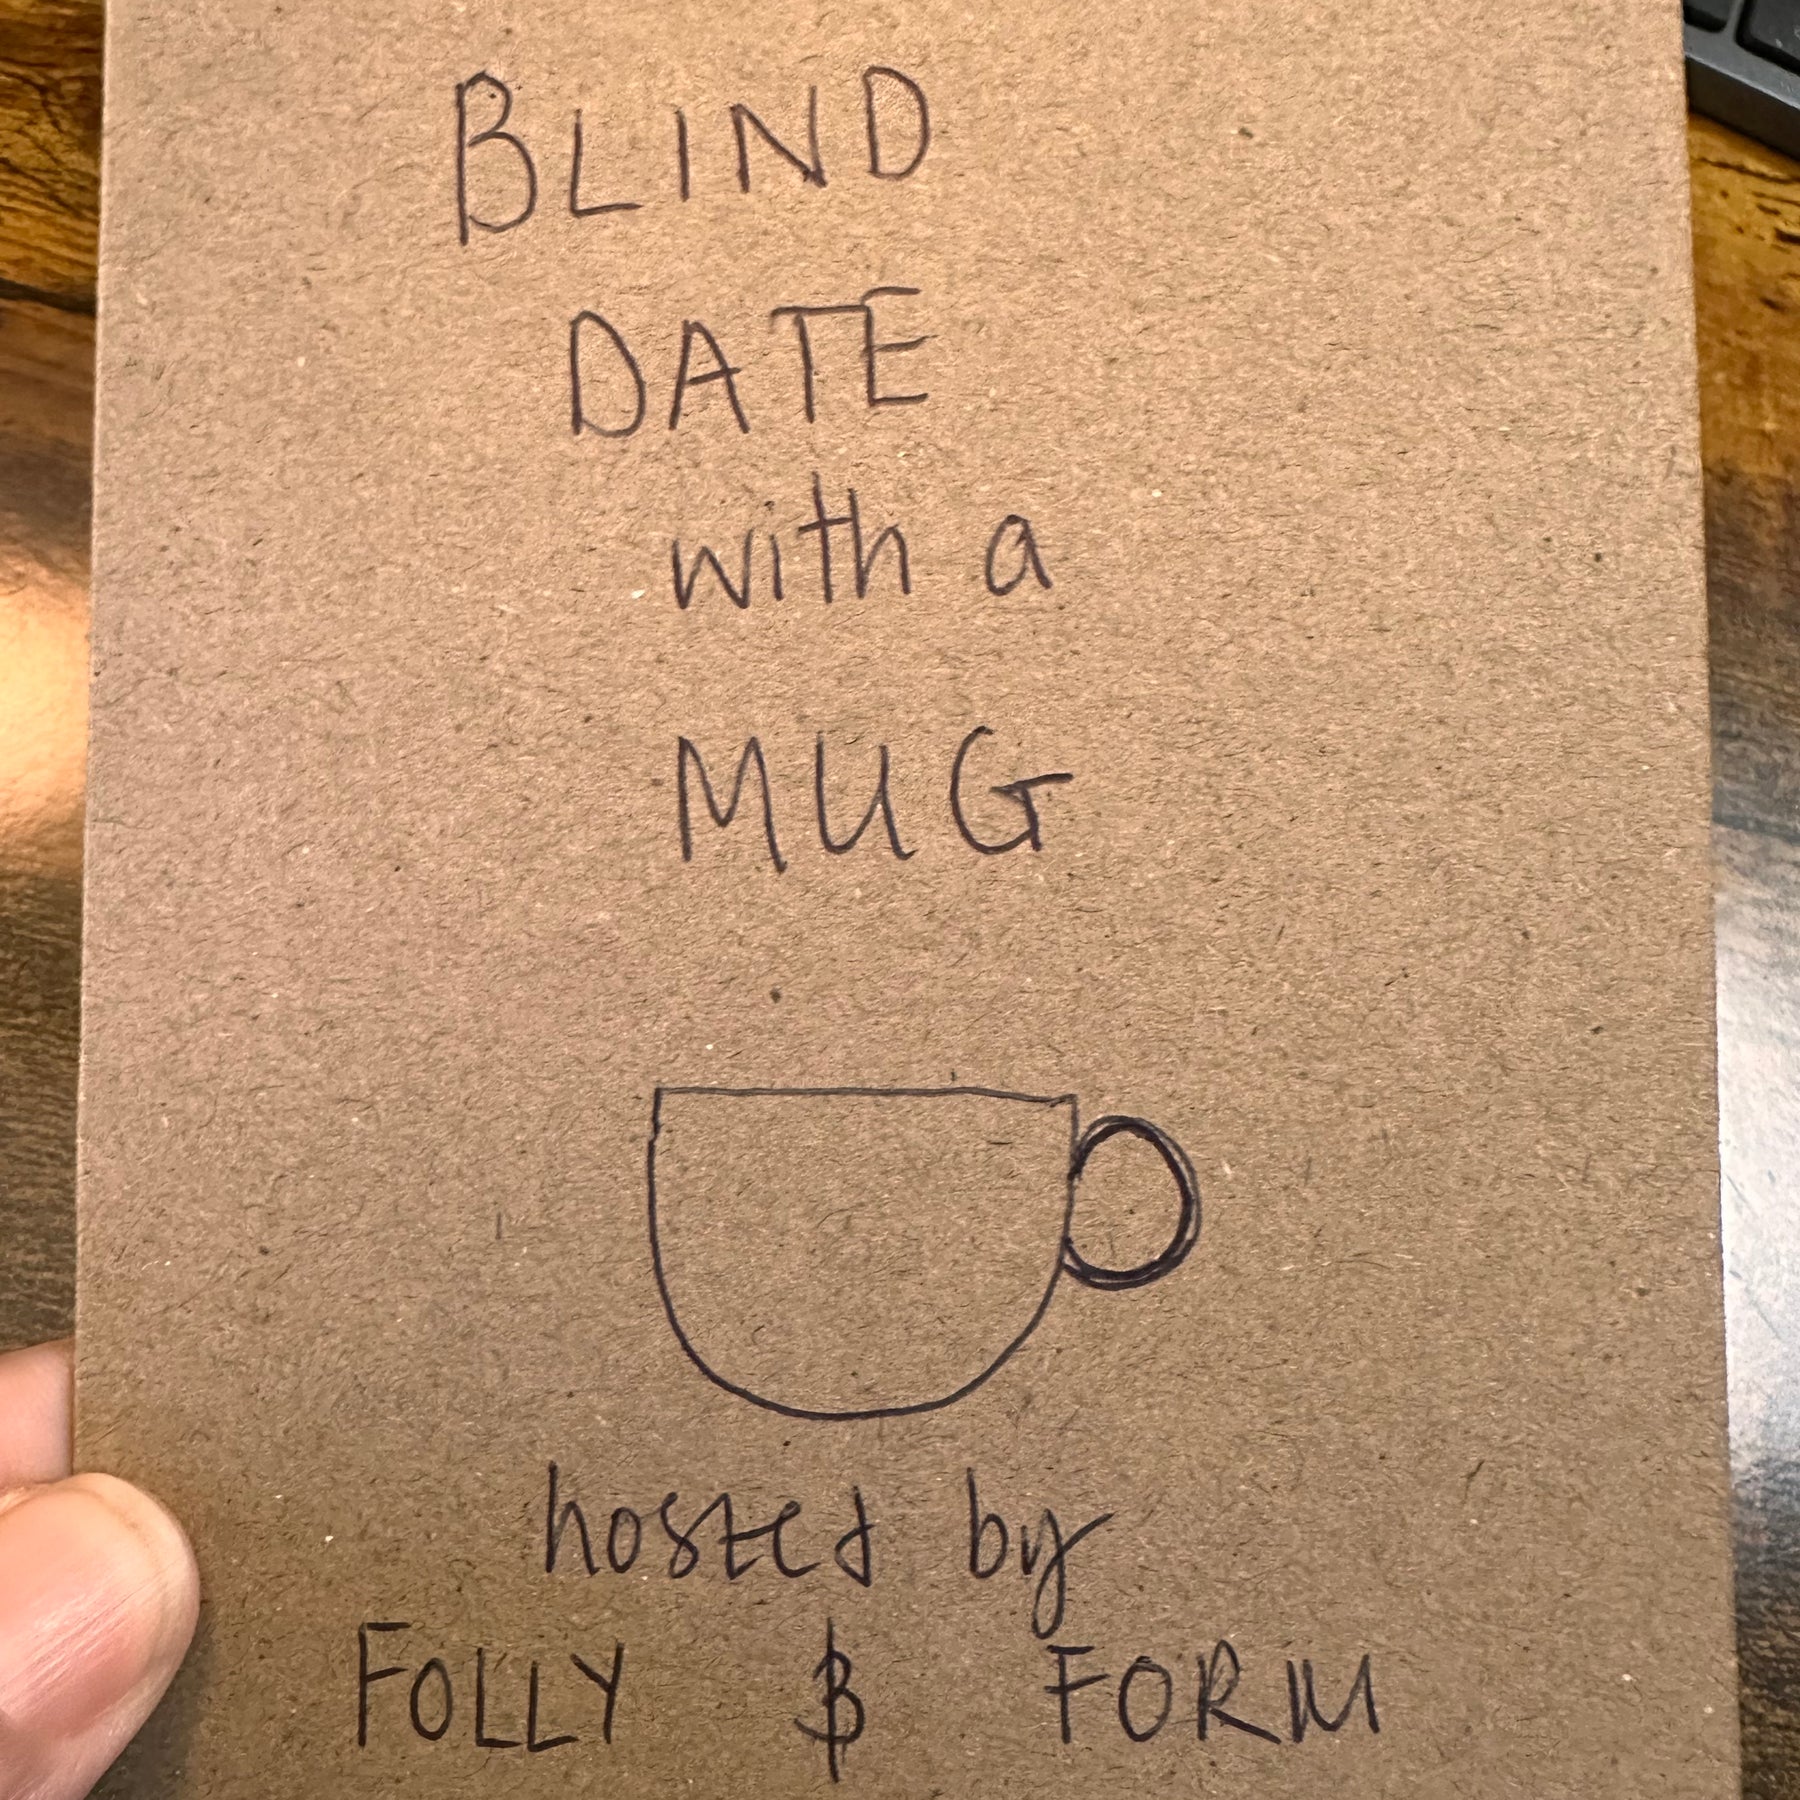 BLIND
DATE
with a
MUG
hosted by
FOLLY & FORM